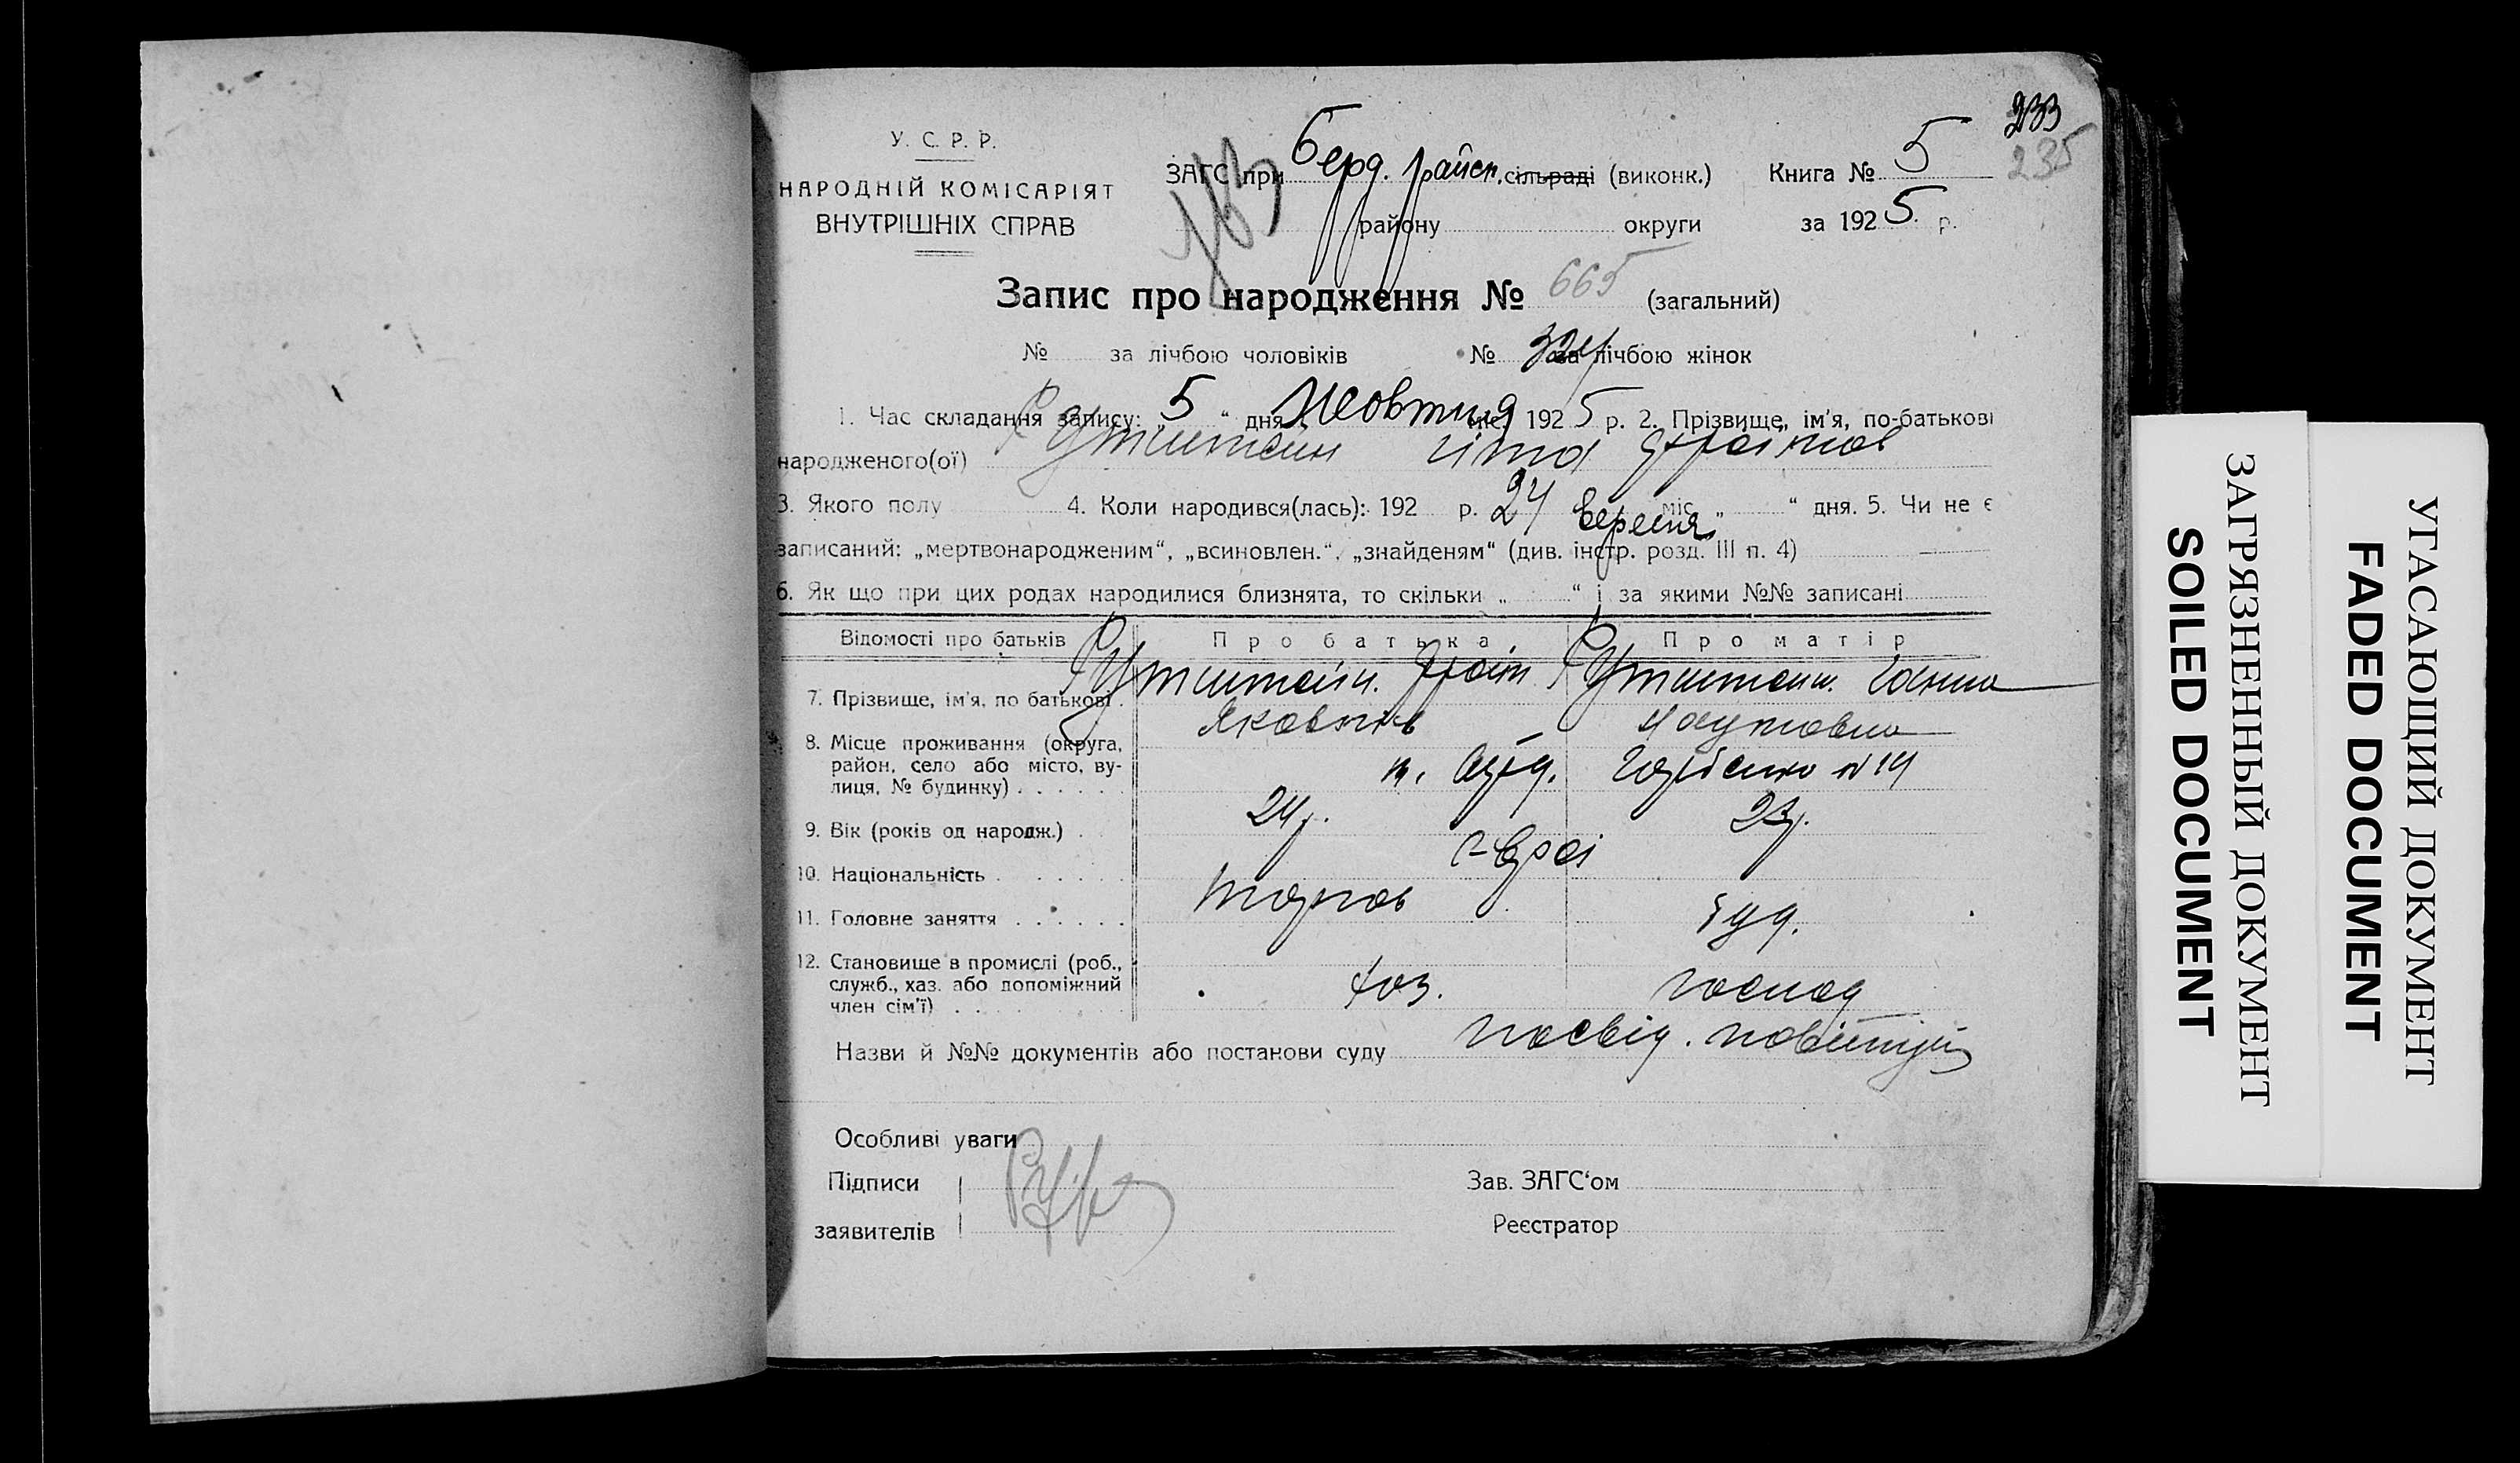 233
235
У. С. Р. Р.
НАРОДНІЙ КОМІСАРІЯТ
ВНУТРІШНІХ СПРАВ
ЗАГС при Берд. райсп. сільраді (виконк.) Книга № 5
району округи за 1925 р.
Запис про народження № 665 (загальний)
№ за лічбою чоловіків № за лічбою жінок
1. Час складання запису: „ 5 “ дня Жовтня міс. 1925 р. 2. Прізвище, ім'я, по-батькові
народженого(ої)
3. Якого полу 4. Коли народився(лась): 192 р. 24 вересня міс. „ “ дня. 5. Чи не є
записаний: „мертвонародженим“, „всиновлен.“, „знайденям“ (див. інстр. розд. III п. 4)
6. Як що при цих родах народилися близнята, то скільки „ “ і за якими №№ записані
Відомості про батьків Про батька Про матір
7. Прізвище, ім'я, по батькові
Яковлів Наумовна
8. Місце проживання (округа, район, село або місто, вулиця, № будинку) м. № 14
9. Вік (років од народж.) 24 р. 23 р.
10. Національність Євреї
11. Головне заняття торгов
12. Становище в промислі (роб., служб., хаз. або допоміжний член сім'ї) хоз. господ
Назви й №№ документів або постанови суду посвід.
Особливі уваги
Підписи
заявителів
Зав. ЗАГС‘ом
Реєстратор
ЗАГРЯЗНЕННЫЙ ДОКУМЕНТ
SOILED DOCUMENT
УГАСАЮЩИЙ ДОКУМЕНТ
FADED DOCUMENT